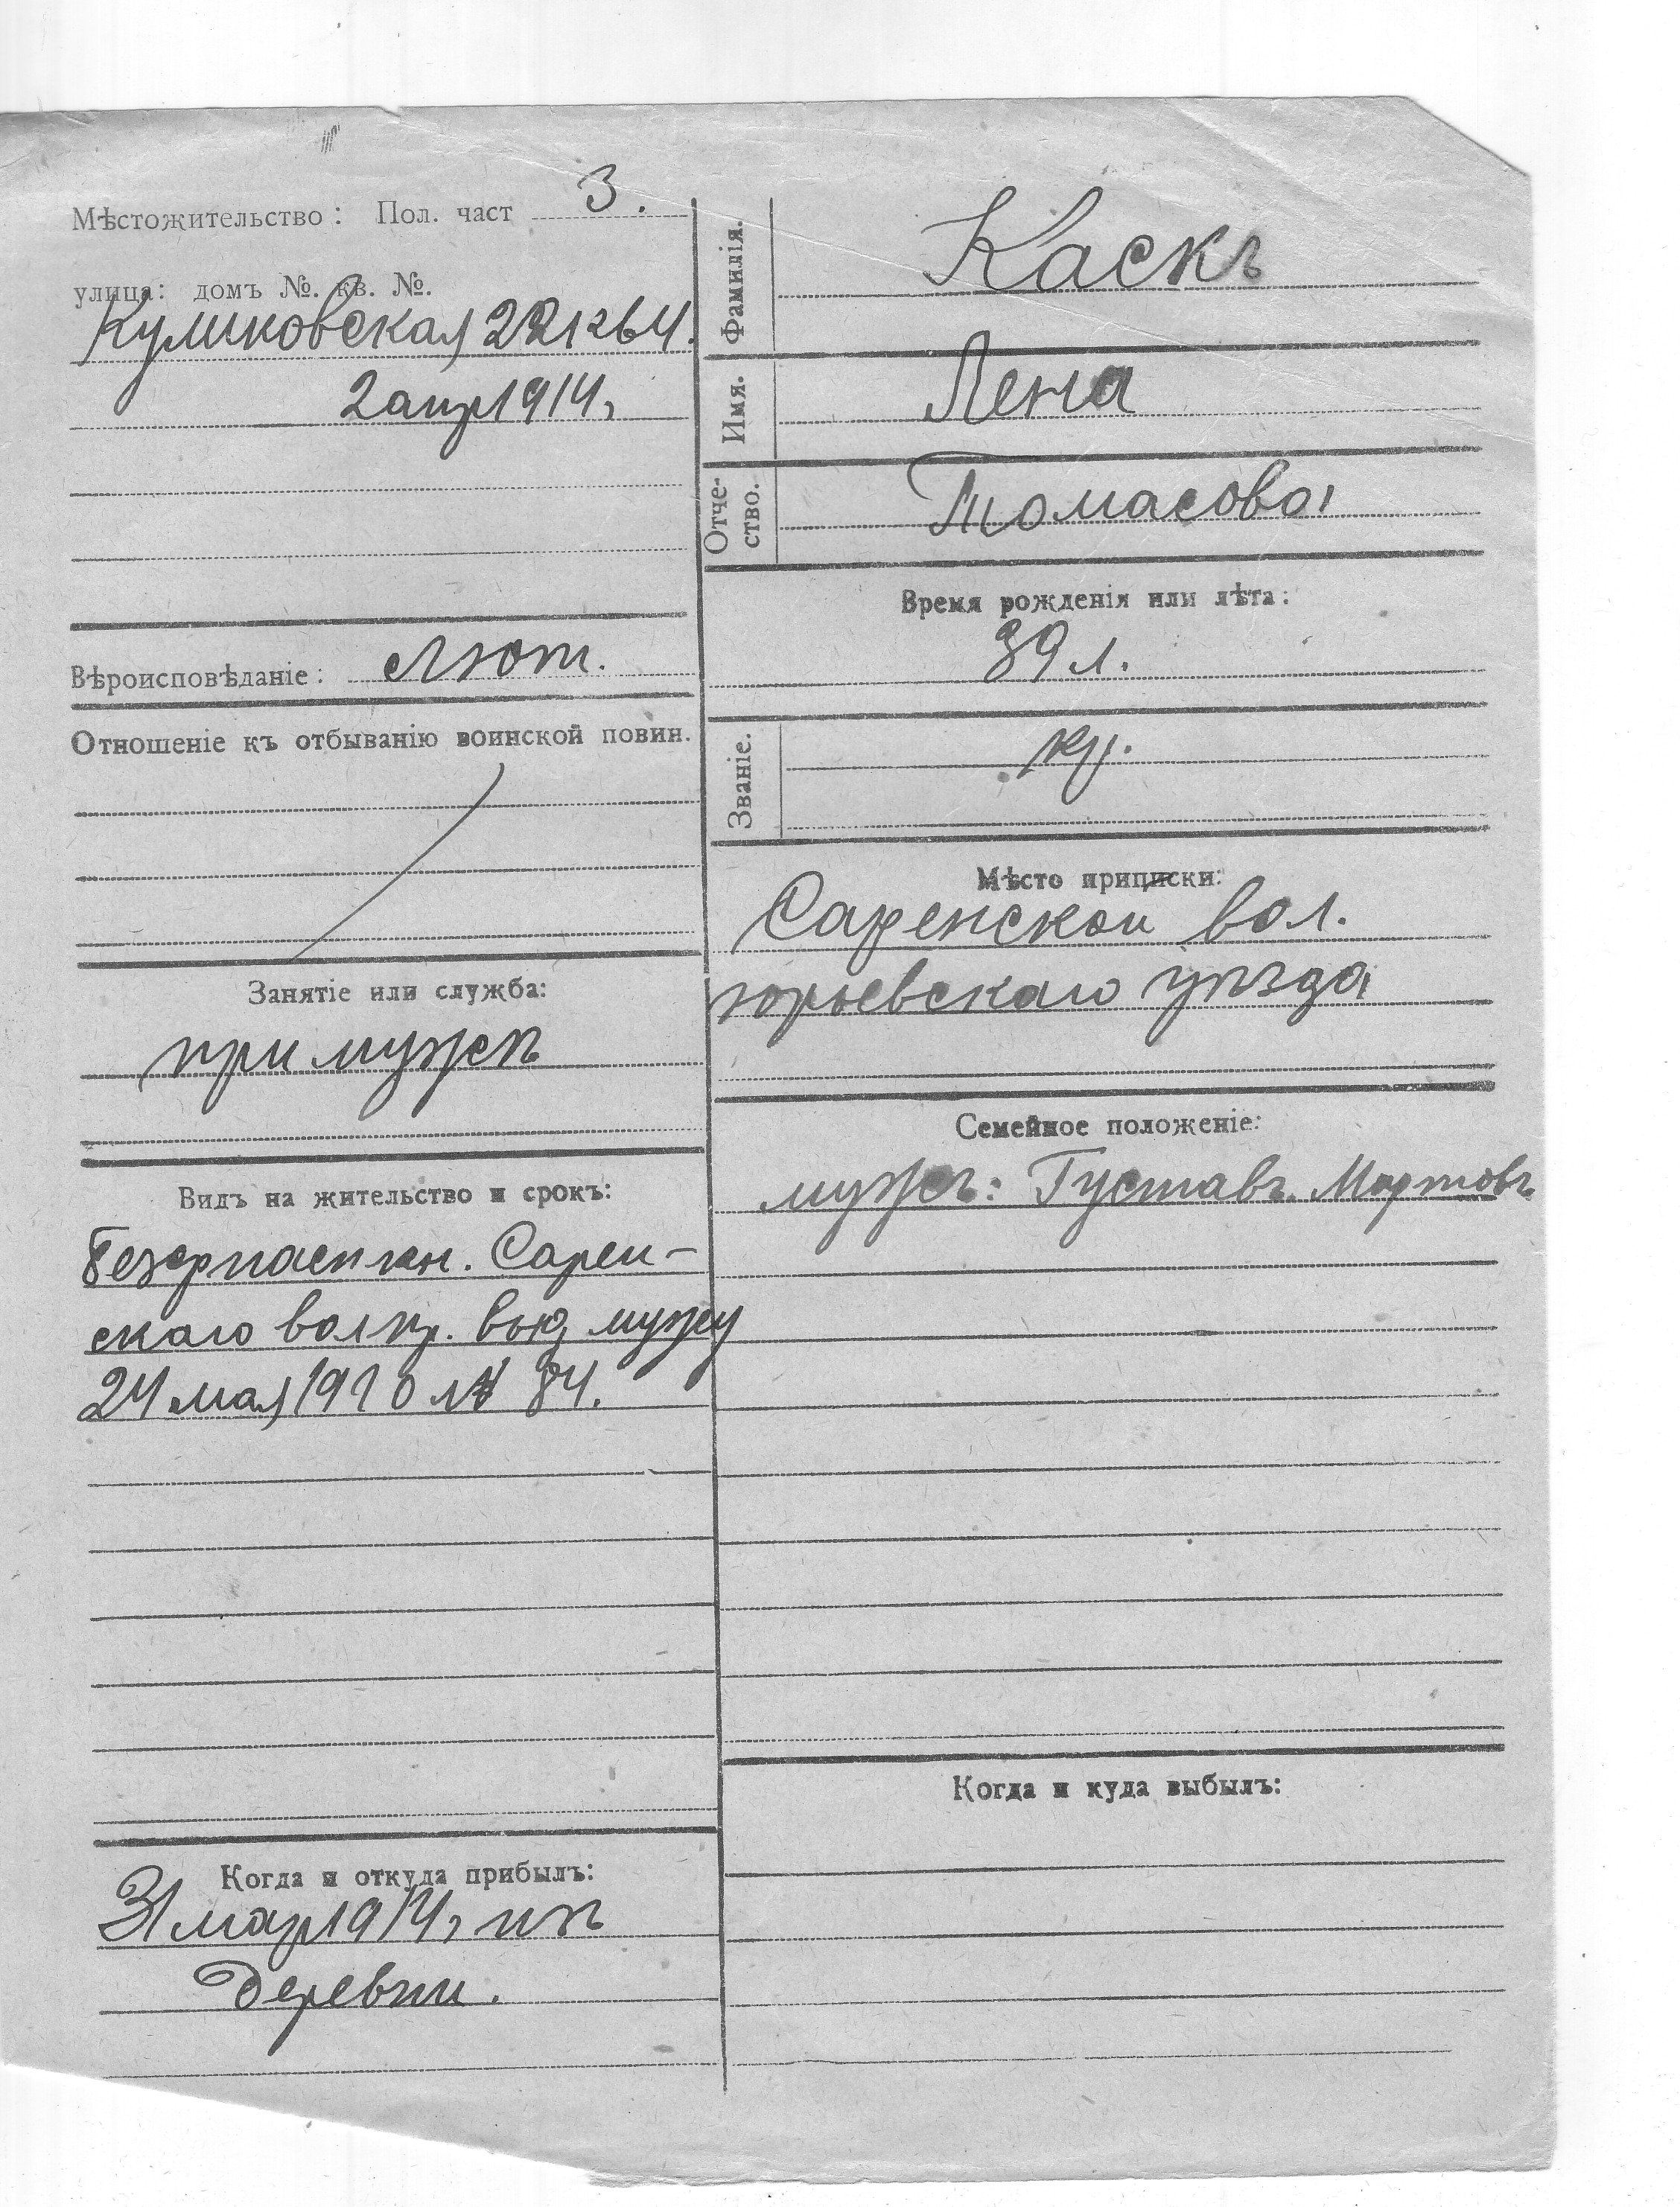 Мѣстожительство: Пол. част 3.
улица: домъ №. кв. №.
Куликовская 22 кв 4.
2 апр 1914 г
Вѣроисповѣданіе: Лют.
Отношеніе къ отбыванію воинской повин.
Занятіе или служба:
при мужѣ
Видъ на жительство и срокъ:
Безср пасп кн. Сарен-
скаго вол пр. выд мужу
24 мая 1910 № 84.
Когда и откуда прибылъ:
31 мар 1914 г изъ
деревни.
Фамилія. Каскъ
Имя. Лена
Отчество. Томасова
Время рожденія или лѣта:
39 л.
Званіе. кр.
Мѣсто приписки:
Саренской вол.
юрьевскаго уѣзда
Семейное положеніе:
мужъ: Густавъ Мартовъ
Когда и куда выбылъ: